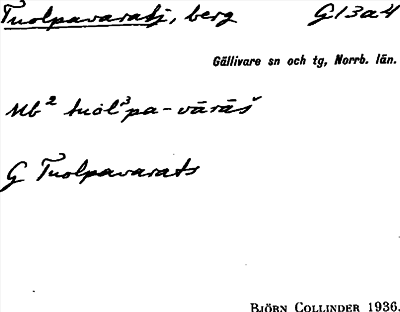 Tuolpavaratj, berg G13a4
Gällivare sn och tg, Norrb. län.
Ub² tuol³pa-vārāš
G Tuolpavarats
BJÖRN COLLINDER 1936.